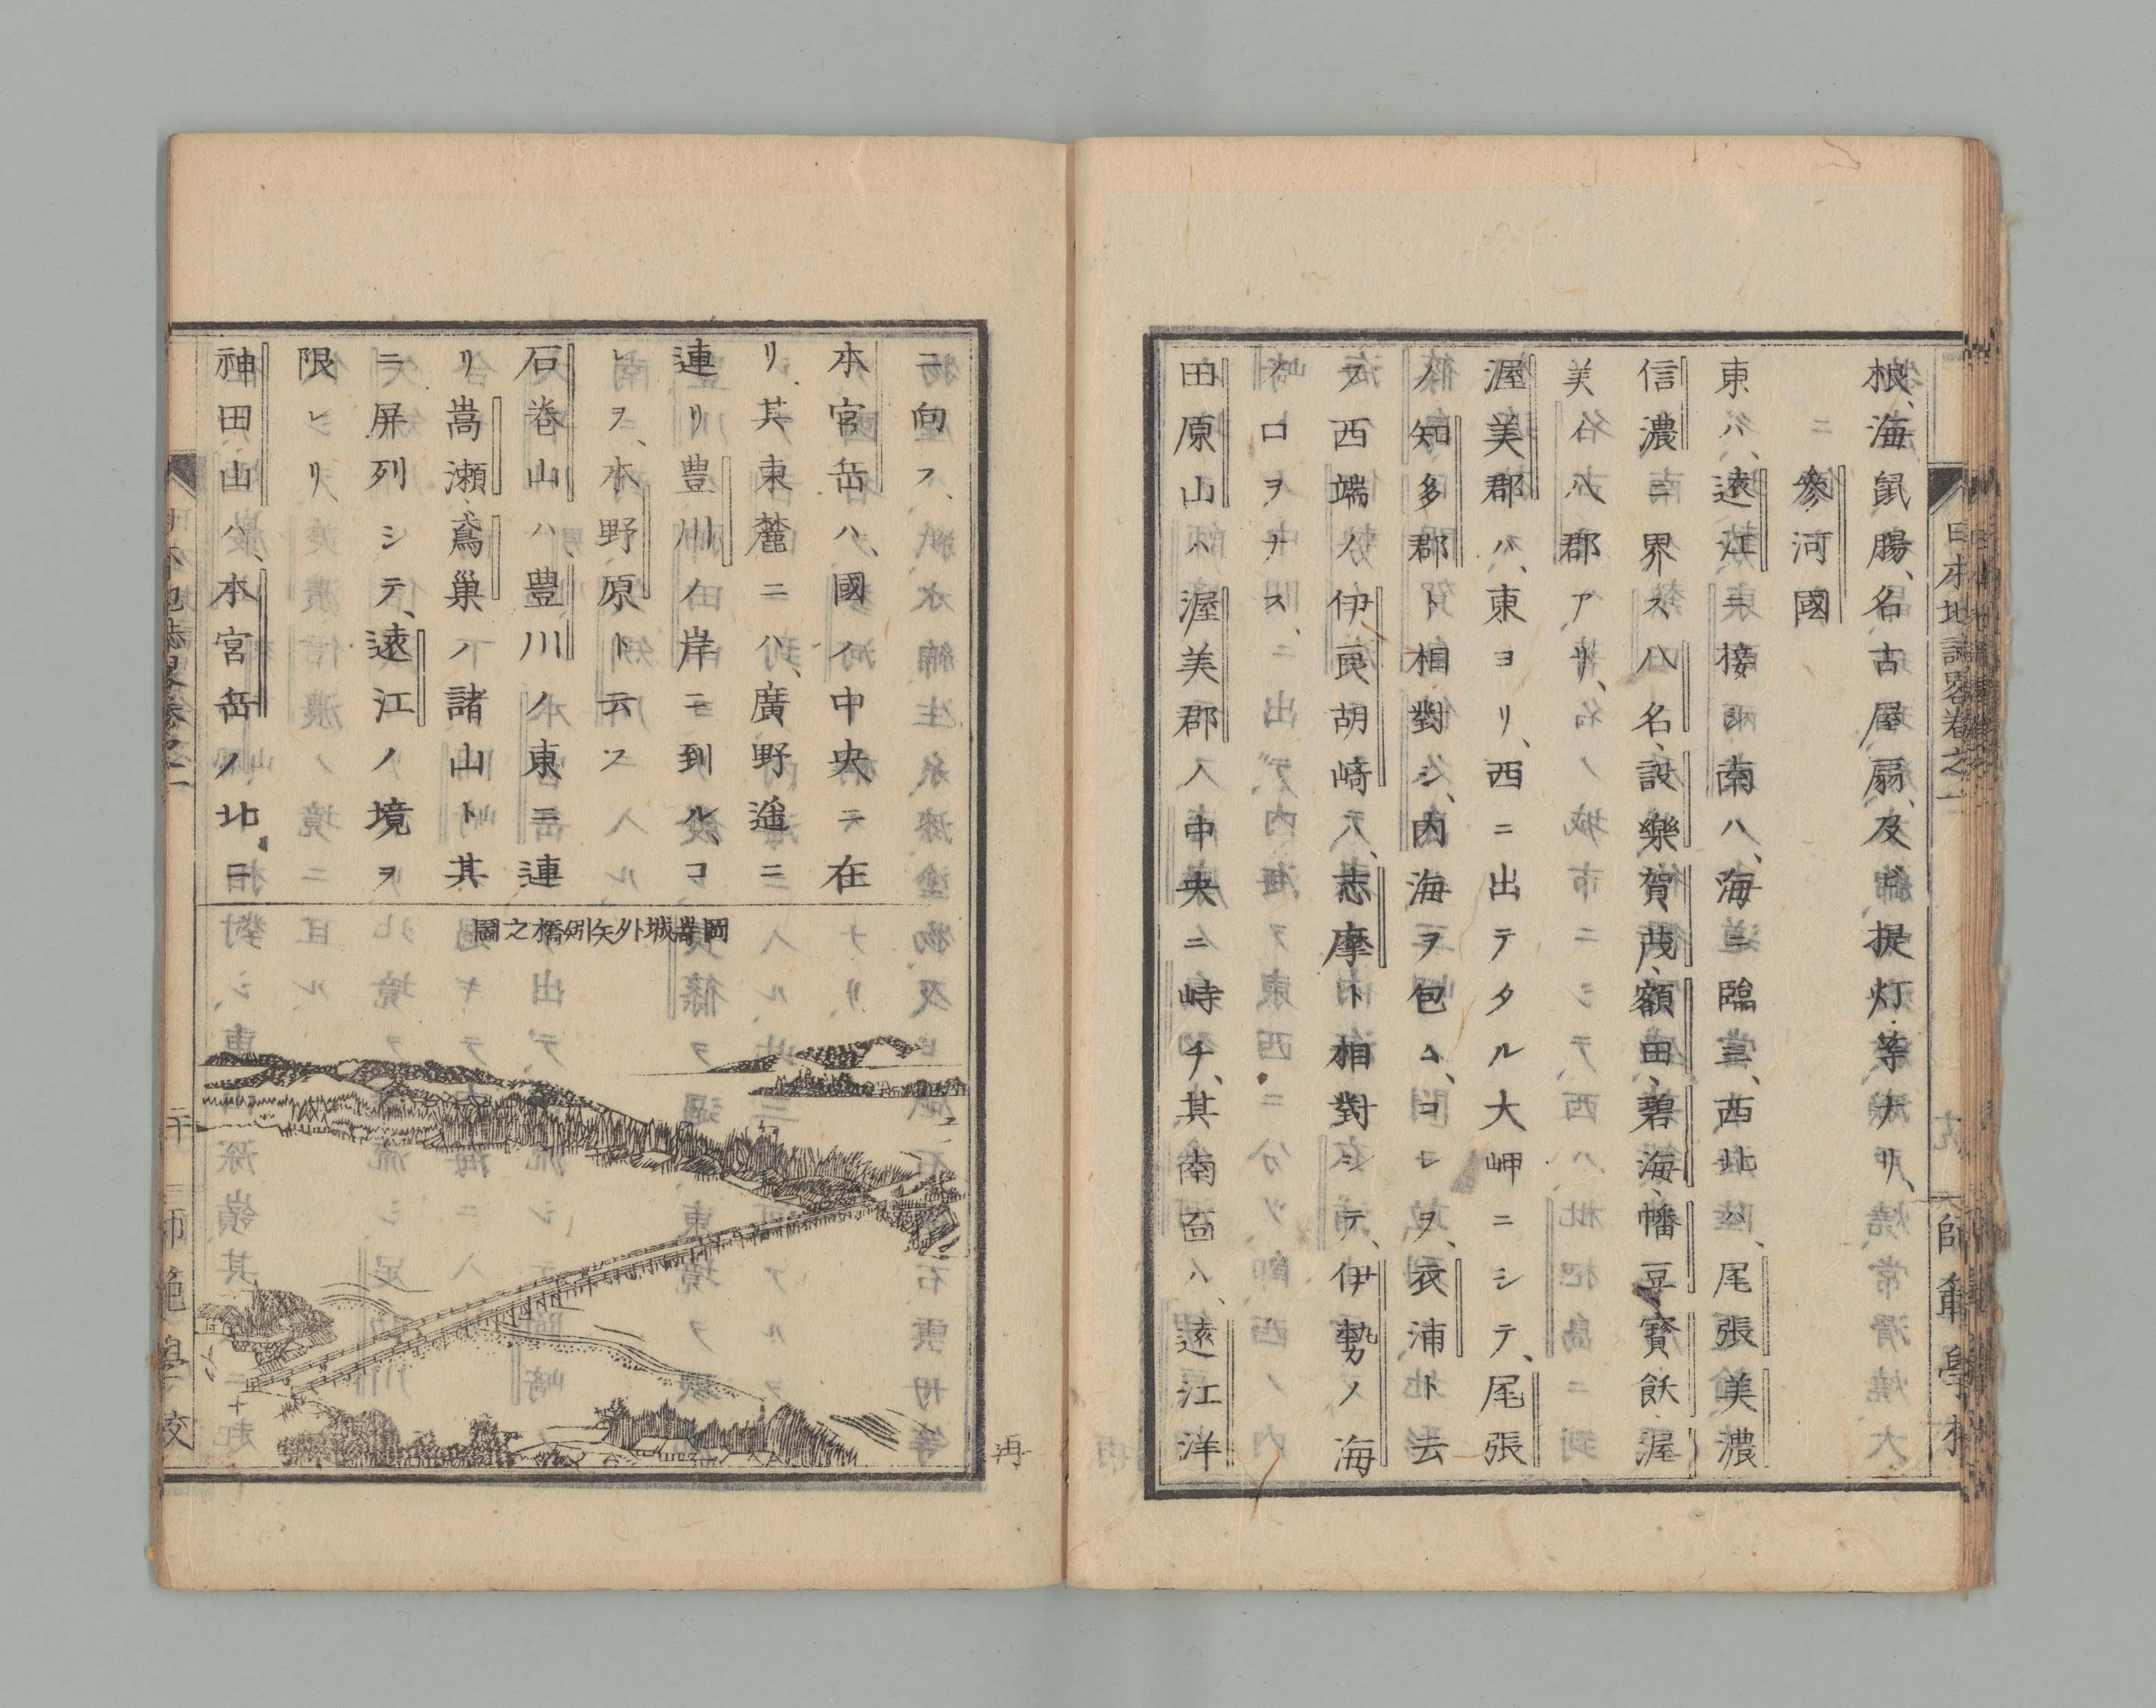 根、海鼠膓、名古屋扇、及ビ提灯等ナリ、
參河國
東ハ、遠江ニ接シ、南ハ、海ニ臨ミ、西北ハ、尾張美濃
信濃ニ界ス八名、設樂賀茂、額田、碧海、幡豆、寶飫、渥
美ノ八郡アリ、
渥美郡ハ、東ヨリ、西ニ出テタル大岬ニシテ、尾張
ノ知多郡ト相對シ、内海ヲ包ム、コレヲ、衣浦ト云
フ西端ノ伊良胡﨑ハ、志摩ト相對シテ、伊勢ノ海
ノ口ヲナス、
田原山ハ渥美郡ノ中央ニ峙チ、其南面ハ、遠江洋
日本地誌畧卷之二
師範學校
ニ向フ、
本宮岳ハ、國ノ中央ニ在
リ其東麓ニハ、廣野遥ニ
連リ豊川ノ岸ニ到ル、コ
レヲ、本野原ト云フ
石巻山ハ豊川ノ東ニ連
リ嵩瀬、鳶巢ノ諸山ト其
ニ屏列シテ、遠江ノ境ヲ
限レリ、
神田山ハ、本宮岳ノ北ニ
岡﨑城外矢矧橋之圖
日本地誌畧卷之二
二十
師範學校